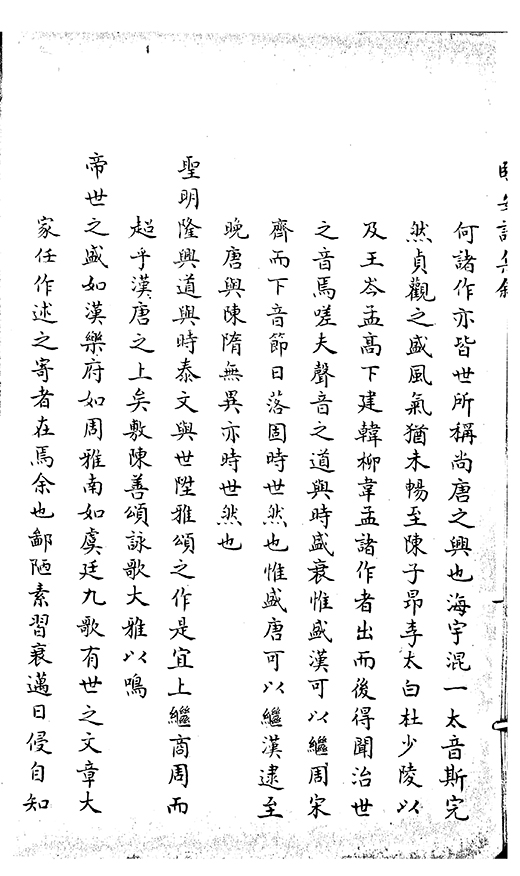 何諸作亦皆世所稱尚唐之興也海宇混一太音斯完
然貞觀之盛風氣猶未暢至陳子昂李太白杜少陵以
及王岑孟髙下建韓柳韋孟諸作者出而後得聞治世
之音焉嗟夫聲音之道與時盛衰惟盛漢可以繼周宋
齊而下音節日落固時世然也惟盛唐可以繼漢逮至
晚唐與陳隋無異亦時世然也
聖明隆興道與時泰文與世陞雅頌之作是宜上繼商周而
超乎漢唐之上矣敷陳善頌詠歌大雅以鳴
帝世之盛如漢樂府如周雅南如虞廷九歌有世之文章大
家任作述之寄者在焉余也鄙陋素習衰邁日侵自知